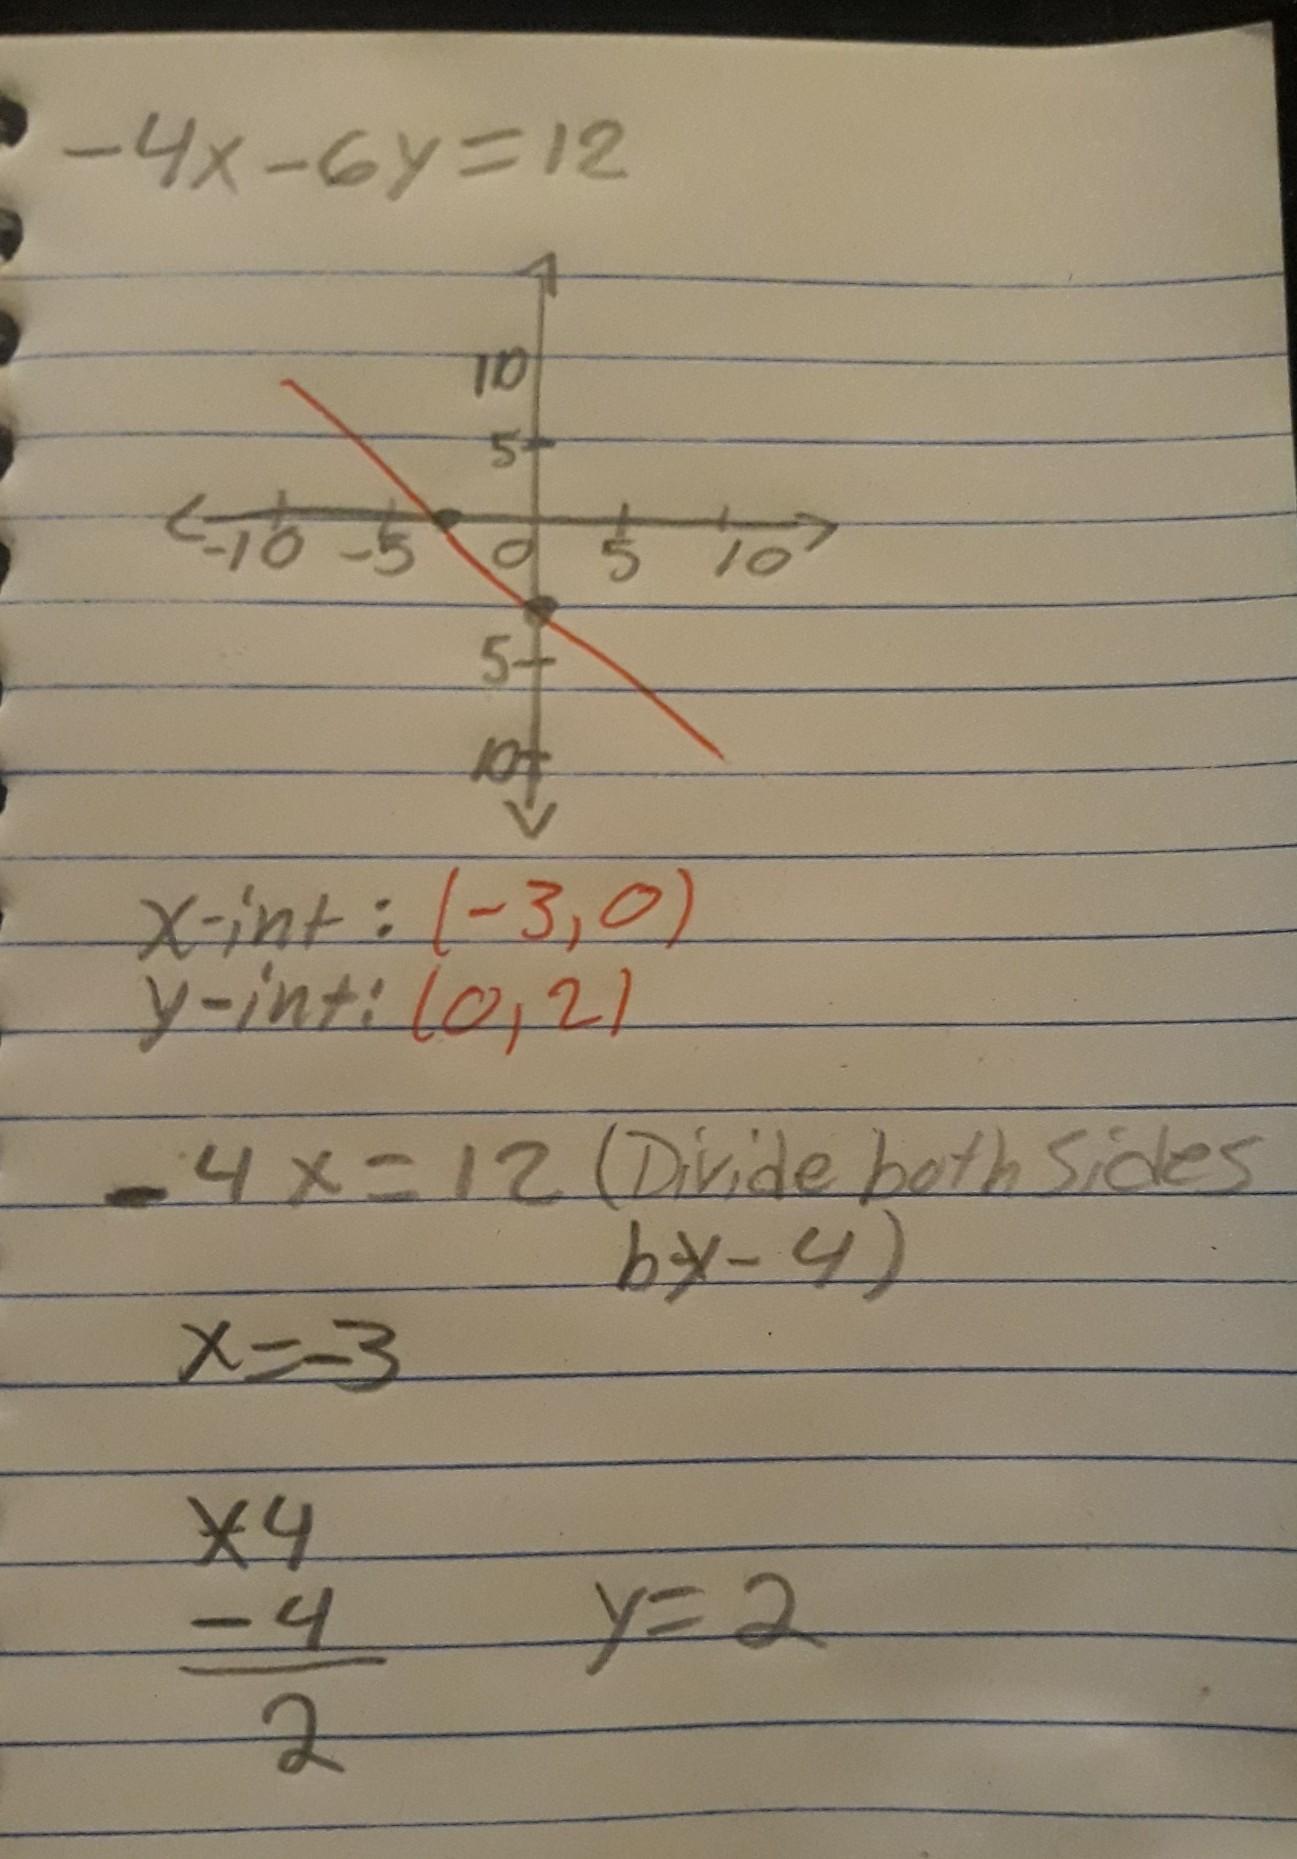 -4x-6y=12
10
5
-10 -5 0 5 10
5
10
x-int: (-3,0)
y-int: (0,2)
-4x=12 (Divide both sides
by-4)
x=-3
x4
-4 y=2
2